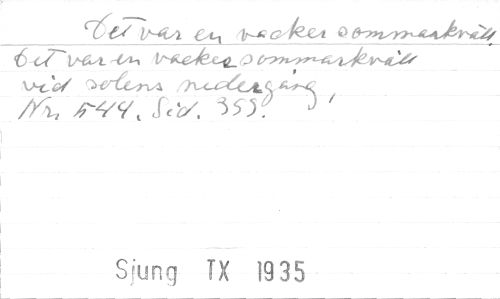 Det var en vacker sommarkväll,
Det var en vacker sommarkväll
vid solens nedergång,
Nr. 544. Sid. 359.
Sjung TX 1935